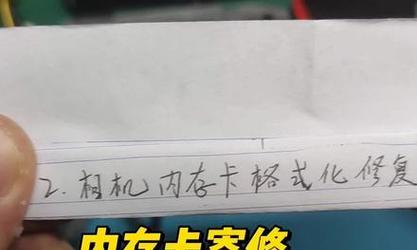 2. 相机内存卡格式化修复
内存卡寄修